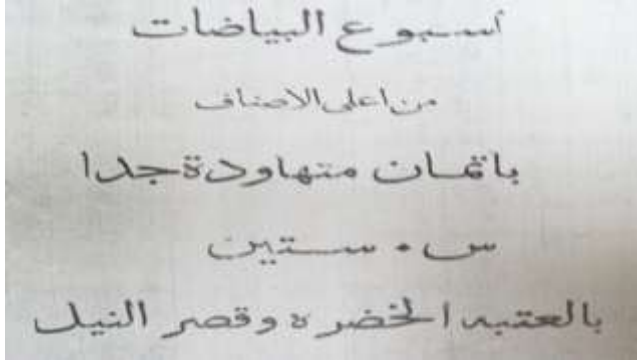 أسبوع البياضات
من اعلى الاصناف
باثمان متهاودة جدا
س . ستين
بالعتبه الخضره وقصر النيل